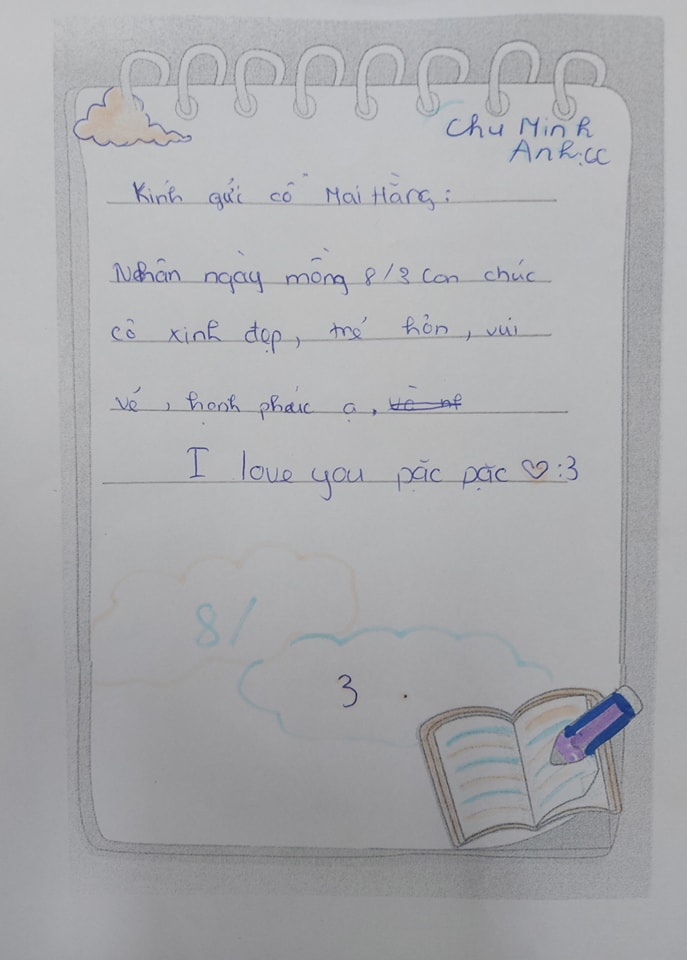 Chu Minh
Anh:cc
Kính gửi cô Mai Hằng:
Nhân ngày mồng 8/3 con chúc
cô xinh đẹp, trẻ hơn, vui
vẻ, hạnh phúc ạ,
I love you pặc pặc ♡:3
8/
3